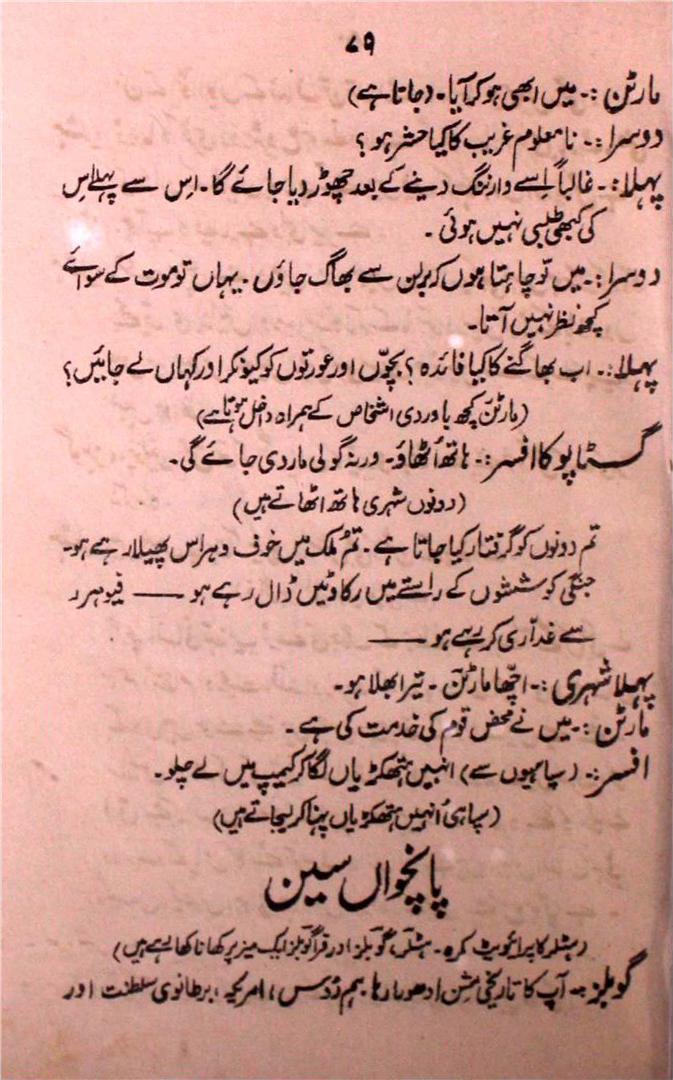 ۷۹
مارٹن :- میں ابھی ہو کر آیا۔ (جاتا ہے)
دوسرا :- نامعلوم غریب کا کیا حشر ہو ؟
پہلا :- غالباً اِسے وارننگ دینے کے بعد چھوڑ دیا جائے گا۔ اس سے پہلے اِس
کی کبھی طلبی نہیں ہوئی ۔
دوسرا :- میں تو چاہتا ہوں کہ برلن سے بھاگ جاؤں ۔ یہاں تو موت کے سوائے
کچھ نظر نہیں آتا۔
پہلا :- اب بھاگنے کا کیا فائدہ ؟ بچّوں اور عورتوں کو کیونکر اور کہاں لے جائیں ؟
(مارٹن کچھ باوردی اشخاص کے ہمراہ داخل ہوتا ہے)
گسٹاپو کا افسر :- ہاتھ اُٹھاؤ۔ ورنہ گولی مار دی جائے گی۔
(دونوں شہری ہاتھ اٹھاتے ہیں)
تم دونوں کو گرفتار کیا جاتا ہے ۔ تم مُلک میں خوف و ہراس پھیلا رہے ہو۔
جنگی کوششوں کے راستے میں رکاوٹیں ڈال رہے ہو —— فیوہرر
سے غدّاری کر رہے ہو ——
پہلا شہری :- اچھا مارٹن ۔ تیرا بھلا ہو۔
مارٹن :- میں نے محض قوم کی خدمت کی ہے ۔
افسر :- (سپاہیوں سے) انہیں ہتھکڑیاں لگا کر کیمپ میں لے چلو ۔
(سپاہی اُنہیں ہتھکڑیاں پہنا کر لیجاتے ہیں)
پانچواں سین
(ہٹلر کا پرائیویٹ کمرہ ۔ ہٹلر، گوبلز اور فرا گوبلز ایک میز پر کھانا کھا رہے ہیں)
گوبلز :- آپ کا تاریخی مشن ادھورا رہا۔ ہم رُوس، امریکہ، برطانوی سلطنت اور